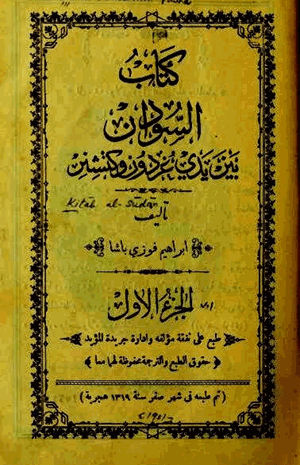 كتاب
السودان
بين يدي غردون وكتشنر
Kitab al-Sudan
تأليف
ابراهيم فوزي باشا
الجزء الاول
طبع على نفقة مؤلفه وادارة جريدة المؤيد
حقوق الطبع والترجمة محفوظة لهما معا
(تم طبعه في شهر صفر سنة ١٣١٩ هجرية)
(1901)